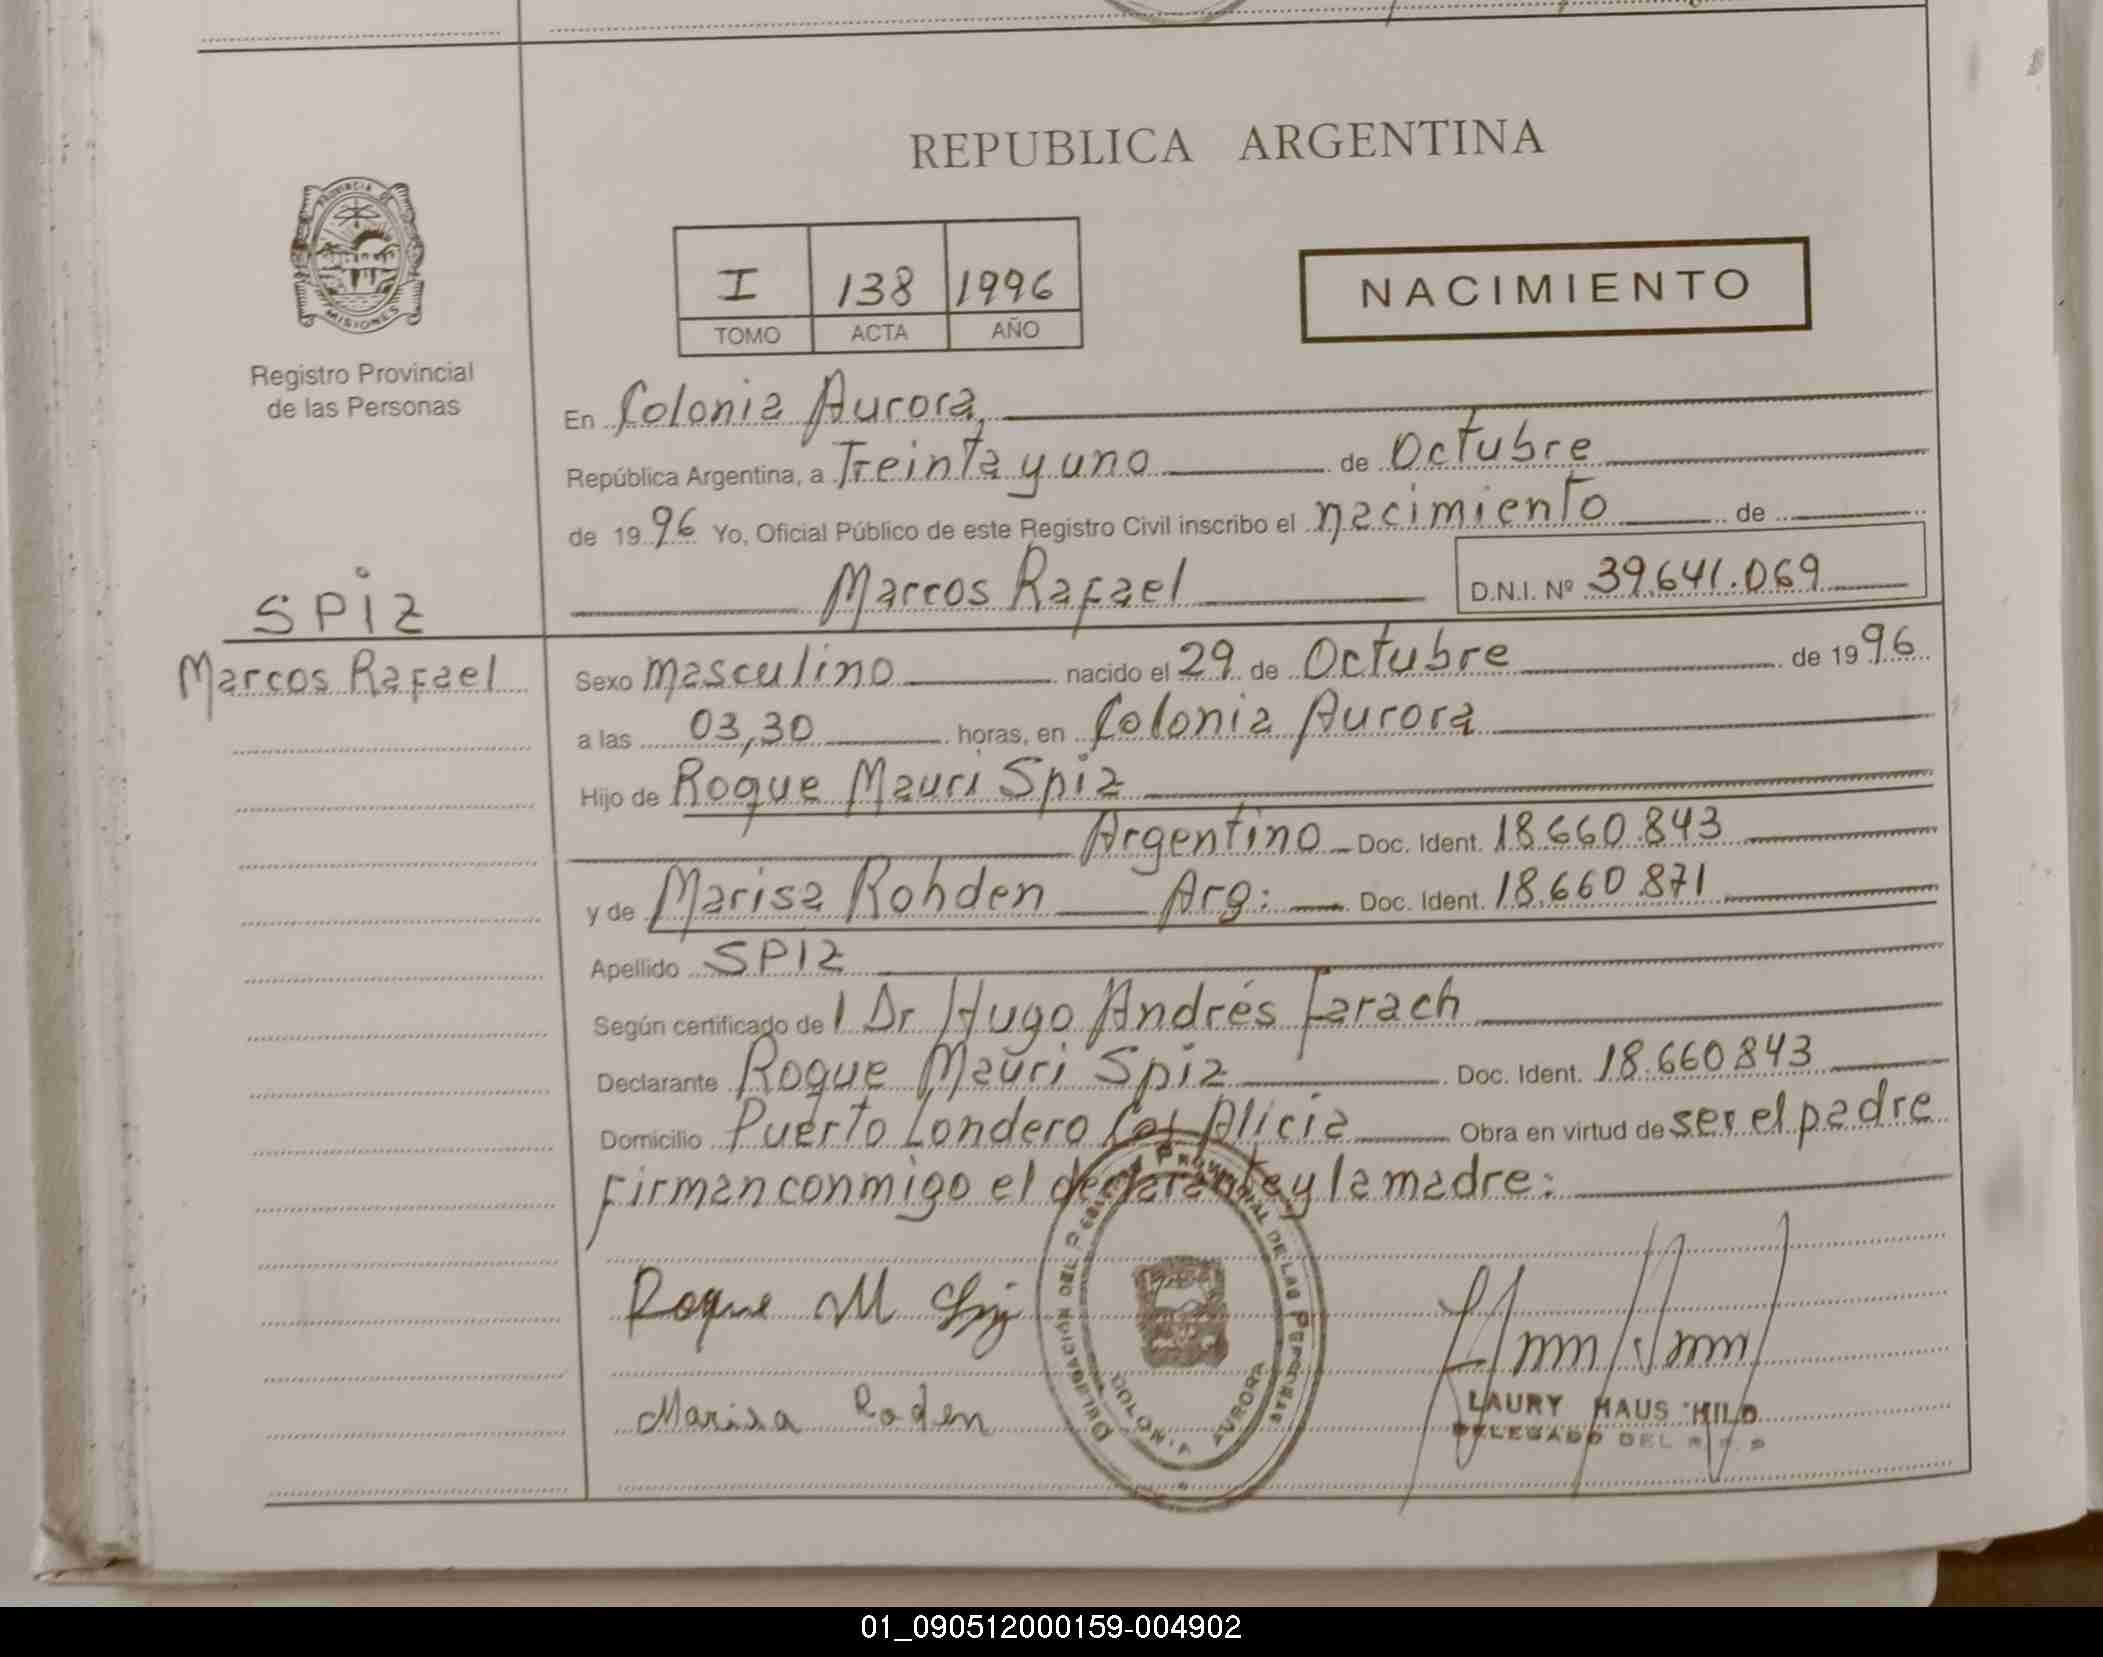 REPUBLICA ARGENTINA
PROVINCIA DE
MISIONES
Registro Provincial
de las Personas
I 138 1996
TOMO ACTA AÑO
NACIMIENTO
En Colonia Aurora,
República Argentina, a Treinta y uno de Octubre
de 1996 Yo, Oficial Público de este Registro Civil inscribo el nacimiento de
Marcos Rafael D.N.I. Nº 39.641.069
SPIZ
Marcos Rafael
Sexo masculino nacido el 29 de Octubre de 1996
a las 03,30 horas, en Colonia Aurora
Hijo de Roque Mauri Spiz
Argentino Doc. Ident. 18.660.843
y de Marisa Rohden Arg: Doc. Ident. 18.660.871
Apellido SPIZ
Según certificado del Dr Hugo Andrés Farach
Declarante Roque Mauri Spiz Doc. Ident. 18.660843
Domicilio Puerto Londero Col Alicia Obra en virtud de ser el padre
Firman conmigo el declarante y la madre:
Roque M Spiz
Marisa Roden
DELEGACIÓN DEL REGISTRO PROVINCIAL DE LAS PERSONAS
COLONIA AURORA
LAURY HAUS HILD
DELEGADO DEL R.P.P
01_090512000159-004902